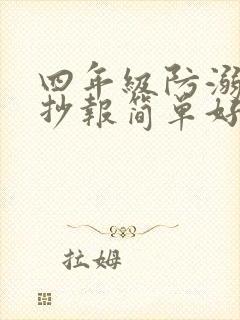 四年级防溺
抄報简單好
拉姆